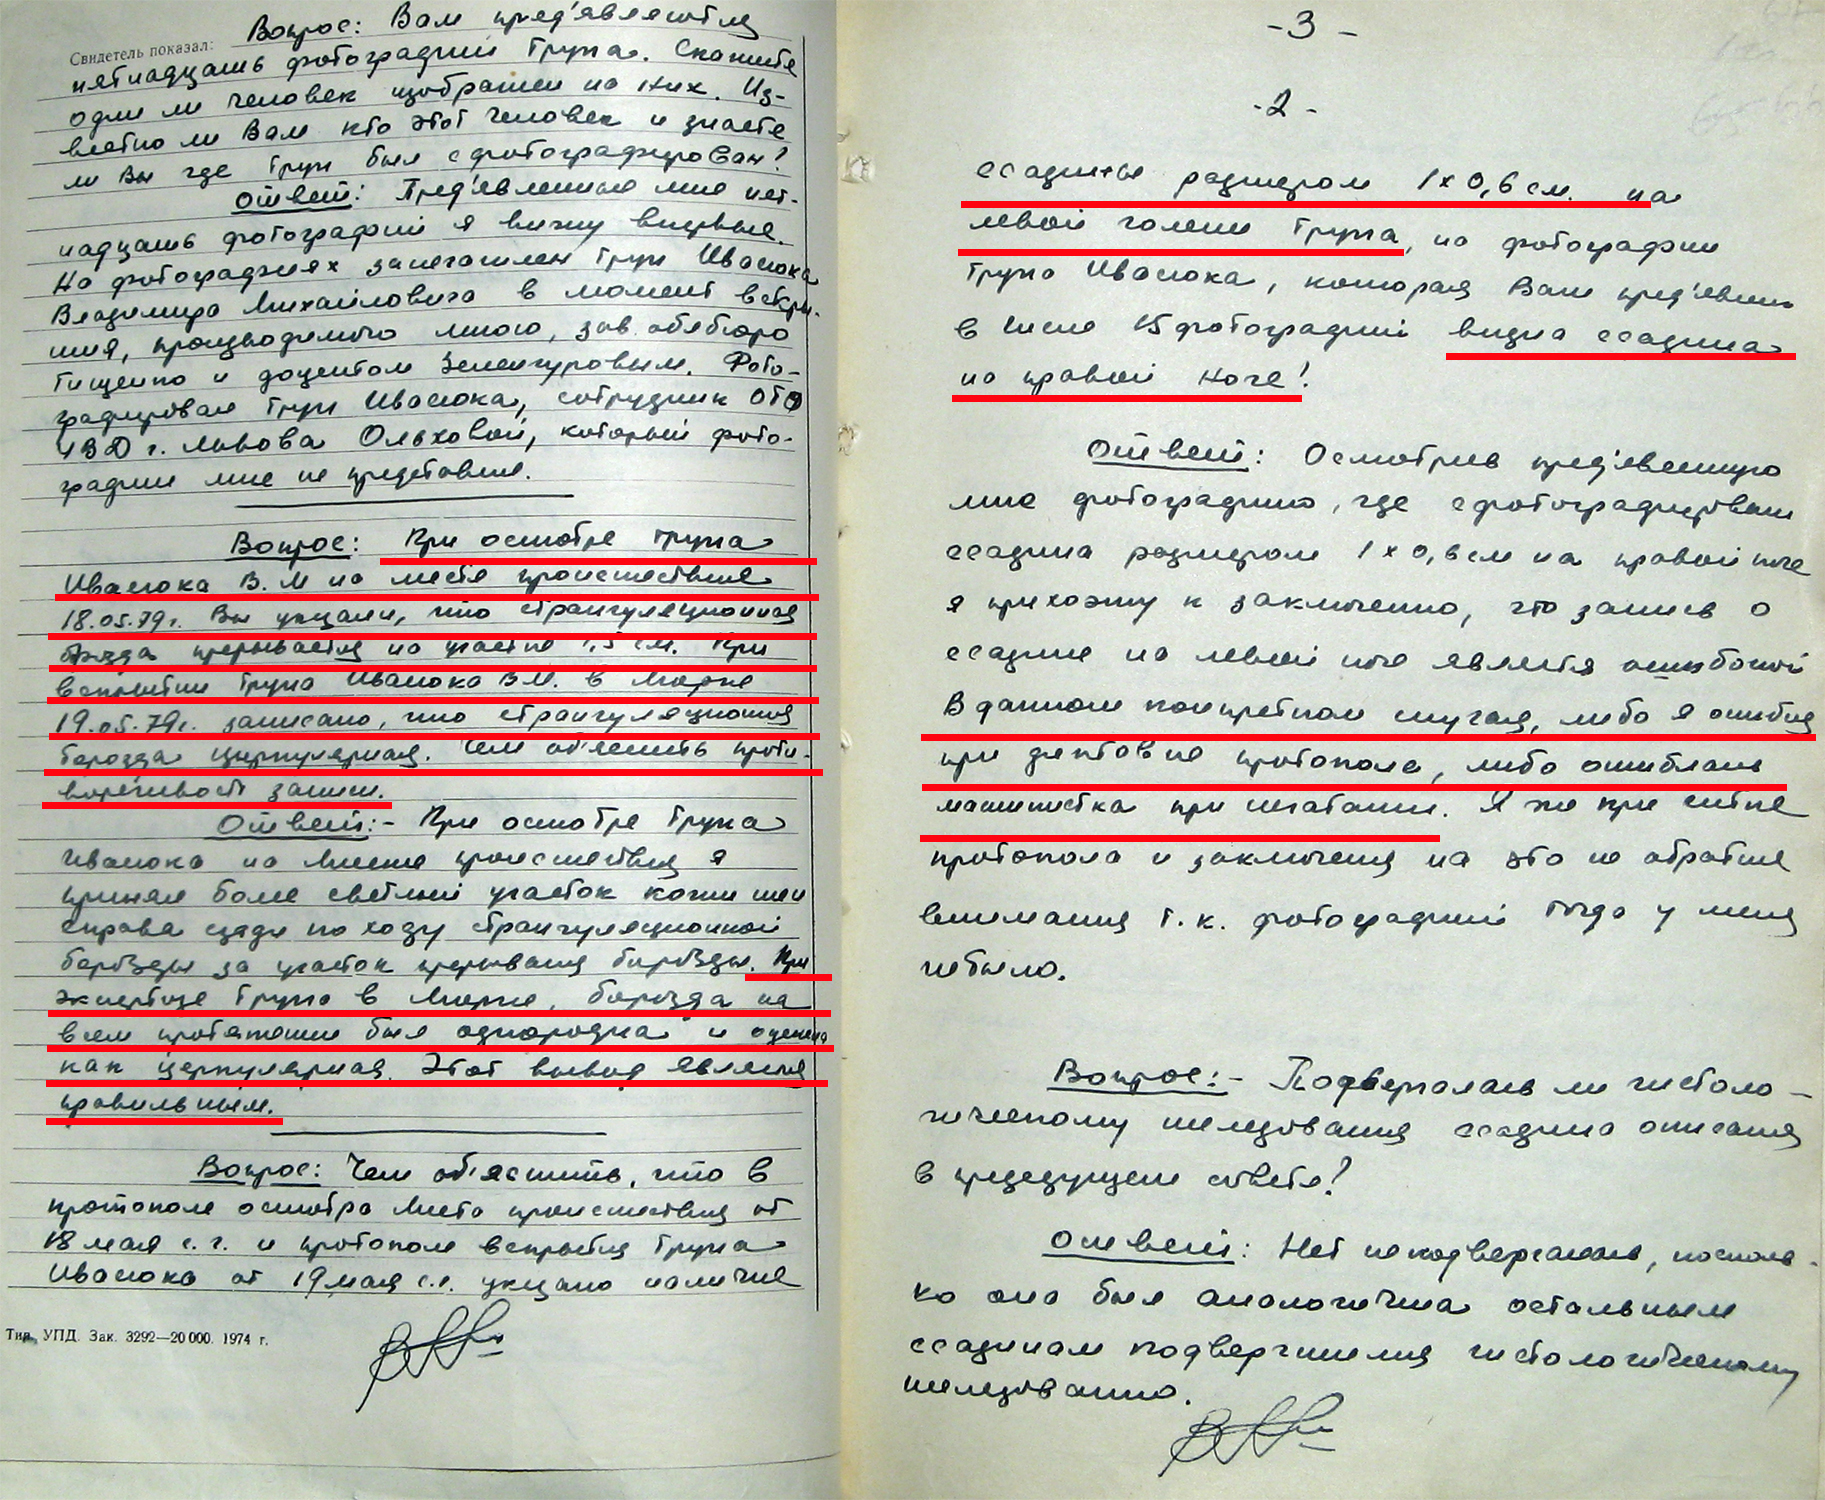 Свидетель показал: Вопрос: Вам пред'являются
пятнадцать фотографий трупа. Скажите
один ли человек изображен на них. Из-
вестно ли Вам кто этот человек и знаете
ли Вы где труп был сфотографирован?
Ответ: Пред'явленные мне пят-
надцать фотографий я вижу впервые.
На фотографиях запечатлен труп Ивасюка
Владимира Михайловича в момент вскры-
тия, производимого мною, зав. облбюро
Тищенко и доцентом Зеленгуровым. Фото-
графировал труп Ивасюка, сотрудник ОТО
УВД г. Львова Ольховой, который фото-
графии мне не представил.
Вопрос: При осмотре трупа
Ивасюка В.М на месте происшествия
18.05.79г. Вы указали, что странгуляционная
борозда прерывается на участке 1,5 см. При
вскрытии трупа Ивасюка В.М. в морге
19.05.79г. записано, что странгуляционная
борозда циркулярная. Чем об'яснить проти-
воречивость записи.
Ответ:- При осмотре трупа
Ивасюка на месте происшествия я
принял более светлый участок кожи шеи
справа сзади по ходу странгуляционной
борозды за участок прерывания борозды. При
экспертизе трупа в морге, борозда на
всем протяжении была однородна и оценена
как циркулярная. Этот вывод является
правильным.
Вопрос: Чем об'яснить, что в
протоколе осмотра места происшествия от
18 мая с.г. и протоколе вскрытия трупа
Ивасюка от 19 мая с.г. указано наличие
Тип. УПД. Зак. 3292—20 000. 1974 г.
- 3 -
- 2 -
ссадины размером 1 х 0,6 см. на
левой голени трупа, на фотографии
трупа Ивасюка, которая Вам пред'явлена
в числе 15 фотографий видна ссадина
на правой ноге?
Ответ: Осмотрев пред'явленную
мне фотографию, где сфотографирована
ссадина размером 1 х 0,6 см на правой ноге
я прихожу к заключению, что запись о
ссадине на левой ноге является ошибочной
В данном конкретном случае, либо я ошибся
при диктовке протокола, либо ошиблась
машинистка при печатании. Я же при читке
протокола и заключения на это не обратил
внимания т.к. фотографий тогда у меня
не было.
Вопрос:- Подвергалась ли гистоло-
гическому исследования ссадина описания
в предедущем ответе?
Ответ: Нет не подвергалась, посколь-
ко она была аналогична остальным
ссадинам подвергшимся гистологическому
исследованию.